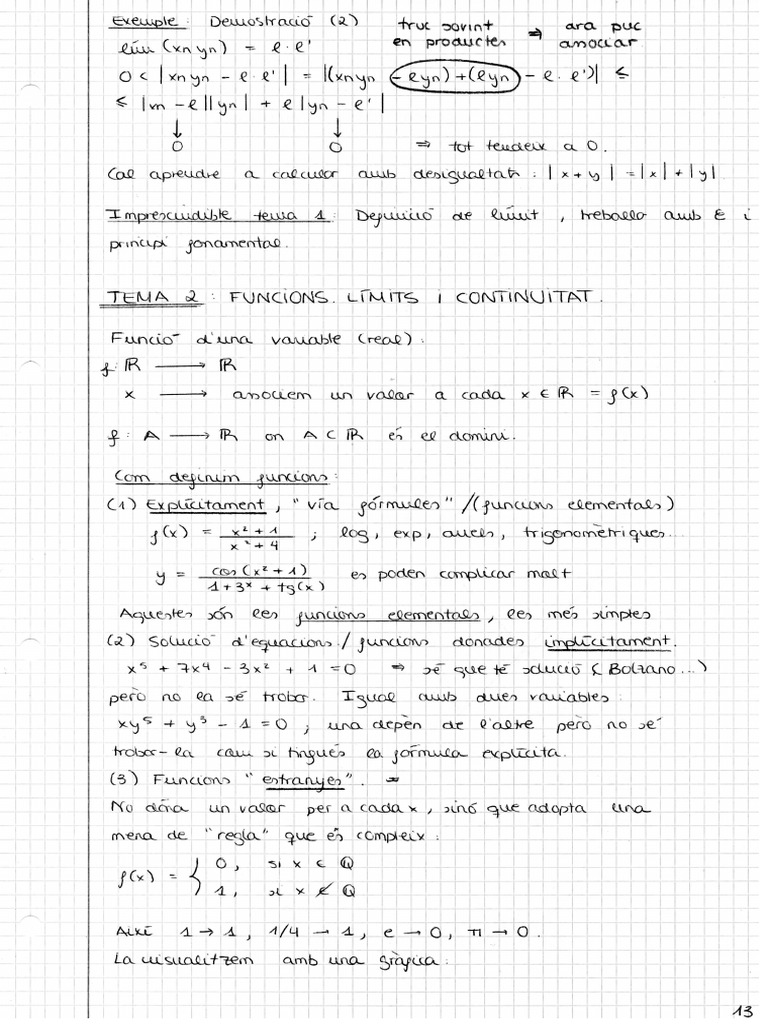 Exemple: Demostració (2) truc sovint ⇒ ara puc
en productes associar
lím (xnyn) = l · l'
0 < |xnyn - l · l'| = |(xnyn - lyn) + (lyn - l · l')| ≤
≤ |xn - l||yn| + l|yn - l'|
↓ ↓
0 0 ⇒ tot tendeix a 0.
Cal aprendre a calcular amb desigualtats: |x + y| = |x| + |y|
Imprescindible tema 1: Definició de límit, treballo amb ε i
principi fonamental.
TEMA 2: FUNCIONS. LÍMITS i CONTINUÏTAT.
Funció d'una variable (real):
f: ℝ → ℝ
x → associem un valor a cada x ∈ ℝ = f(x)
f: A → ℝ on A ⊂ ℝ és el domini.
Com definim funcions:
(1) Explícitament, "vía fórmules" /(funcions elementals)
f(x) = x² + 1 / x² + 4 ; log, exp, arrels, trigonomètriques...
y = cos(x² + 1) / 1 + 3ˣ + tg(x) es poden complicar molt
Aquestes són les funcions elementals, les més simples
(2) Solució d'equacions / funcions donades implícitament.
x⁵ + 7x⁴ - 3x² + 1 = 0 ⇒ sé que té solució (Bolzano...)
però no la sé trobar. Igual amb dues variables:
xy⁵ + y³ - 1 = 0 ; una depèn de l'altre però no sé
trobar-la com si tingués la fórmula explícita.
(3) Funcions "estranyes". ⇒
No dóna un valor per a cada x, sinó que adopta una
mena de "regla" que es compleix:
f(x) = { 0, si x ∈ ℚ
1, si x ∉ ℚ
Així 1 → 1, 1/4 → 1, e → 0, π → 0.
La visualitzem amb una gràfica:
13